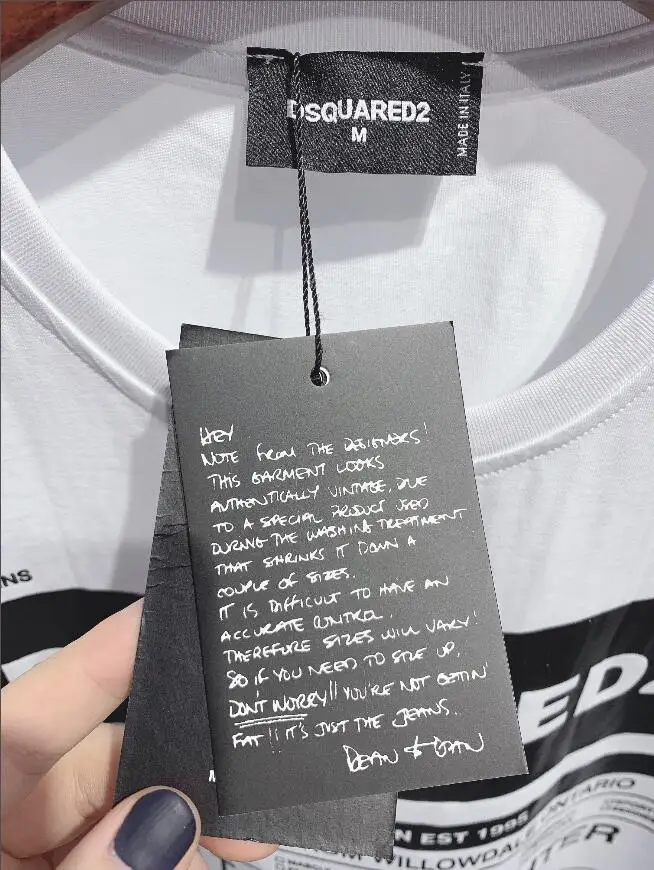 DSQUARED2
M
MADE IN ITALY
HEY
NOTE FROM THE DESIGNERS!
THIS GARMENT LOOKS
AUTHENTICALLY VINTAGE, DUE
TO A SPECIAL PRODUCT USED
DURING THE WASHING TREATMENT
THAT SHRINKS IT DOWN A
COUPLE OF SIZES.
IT IS DIFFICULT TO HAVE AN
ACCURATE CONTROL.
THEREFORE SIZES WILL VARY!
SO IF YOU NEED TO SIZE UP,
DON'T WORRY!! YOU'RE NOT GETTIN'
FAT!! IT'S JUST THE JEANS.
DEAN & DAN
NS
ED2
N EST 1995
ONTARIO
OM WILLOWDALE